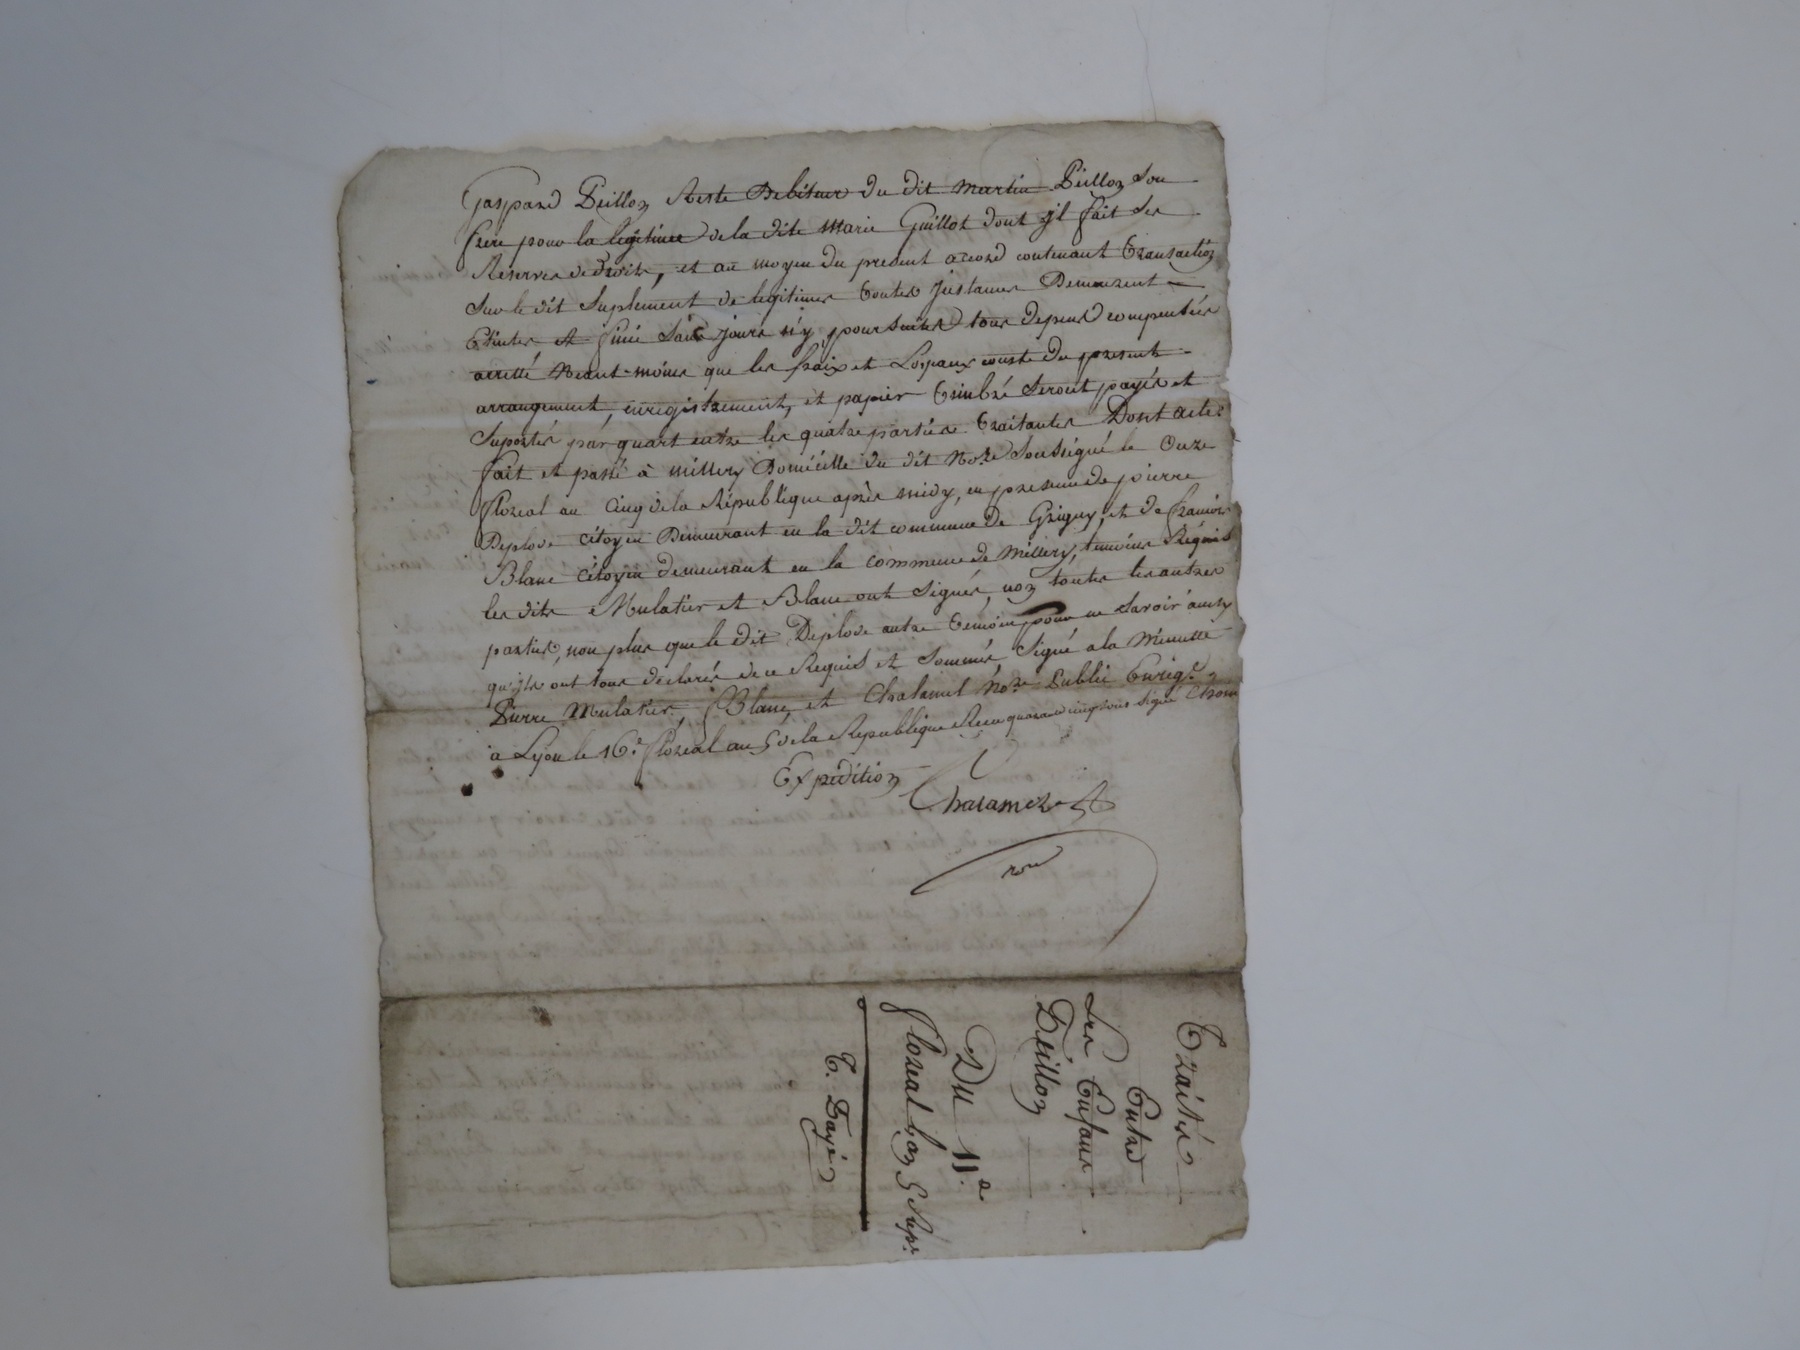 Gaspard Peillon Reste Debiteur du dit Martin Peillon Son
frere pour la legitime de la dite Marie Guillot dont jl fait Ses
Reserves de Droits, et au moyen du present accord contenant Transaction
Sur le dit Suplement de legitimes toutes Jnstances Demeurent
Eteintes et finie Sans jours n'y poursuites tous depens compensées
arretté Neant-moins que les fraix et Loyaux couste du present
arrangement, enregistrement, et papier timbré Seront payés et
Suportés par quart entre les quatre parties traitantes Dont acte:
fait et passé à Millery Domicille du dit No.re Soussigné le Onze
floreal an Cinq de la République après midy, en presence de pierre
Deplode citoyen Demeurant en la dit commune de Grigny, et de francois
Blanc citoyen demeurant en la commune de Millery, temoins Réquis
les dits Mulatier et Blanc ont Signés, non toutes les autres
parties, non plus que le dit Deplode autre témoin pour ne Savoir ainsy
qu'jls ont tous déclarés de ce Requis et Sommés, Signé a la Minutte
Pierre Mulatier, Blanc, et Chalamel No.re Public Enrég.é
à Lyon le 16.e floreal an 5 de la Republique Recu quarante cinq sous Signé
Expédition
Chalamel
Traités
Entre
Les Enfans
Peillon
Du 11.e
floreal an 5 Rep.
T. Payé